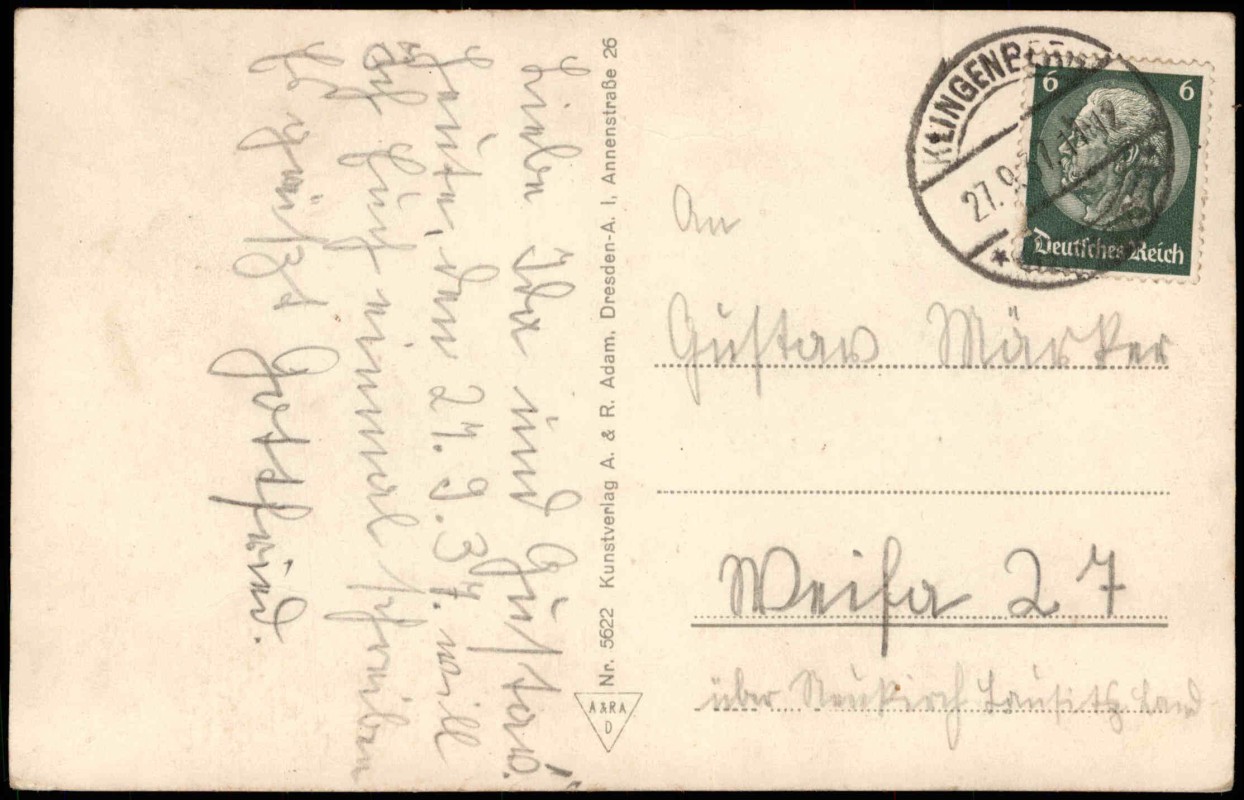 Liebe Ida und Gustav.
Heute, den 27. 9. 37. will
ich Euch einmal schreiben
Es grüßt Gottfried.
Nr. 5622 Kunstverlag A. & R. Adam. Dresden-A. I, Annenstraße 26
A&RA
D
KLINGENBERG
27. 9. 11-12
6 6
Deutsches Reich
An
Gustav Märker
Weifa 27
über Neukirch Lausitz Land